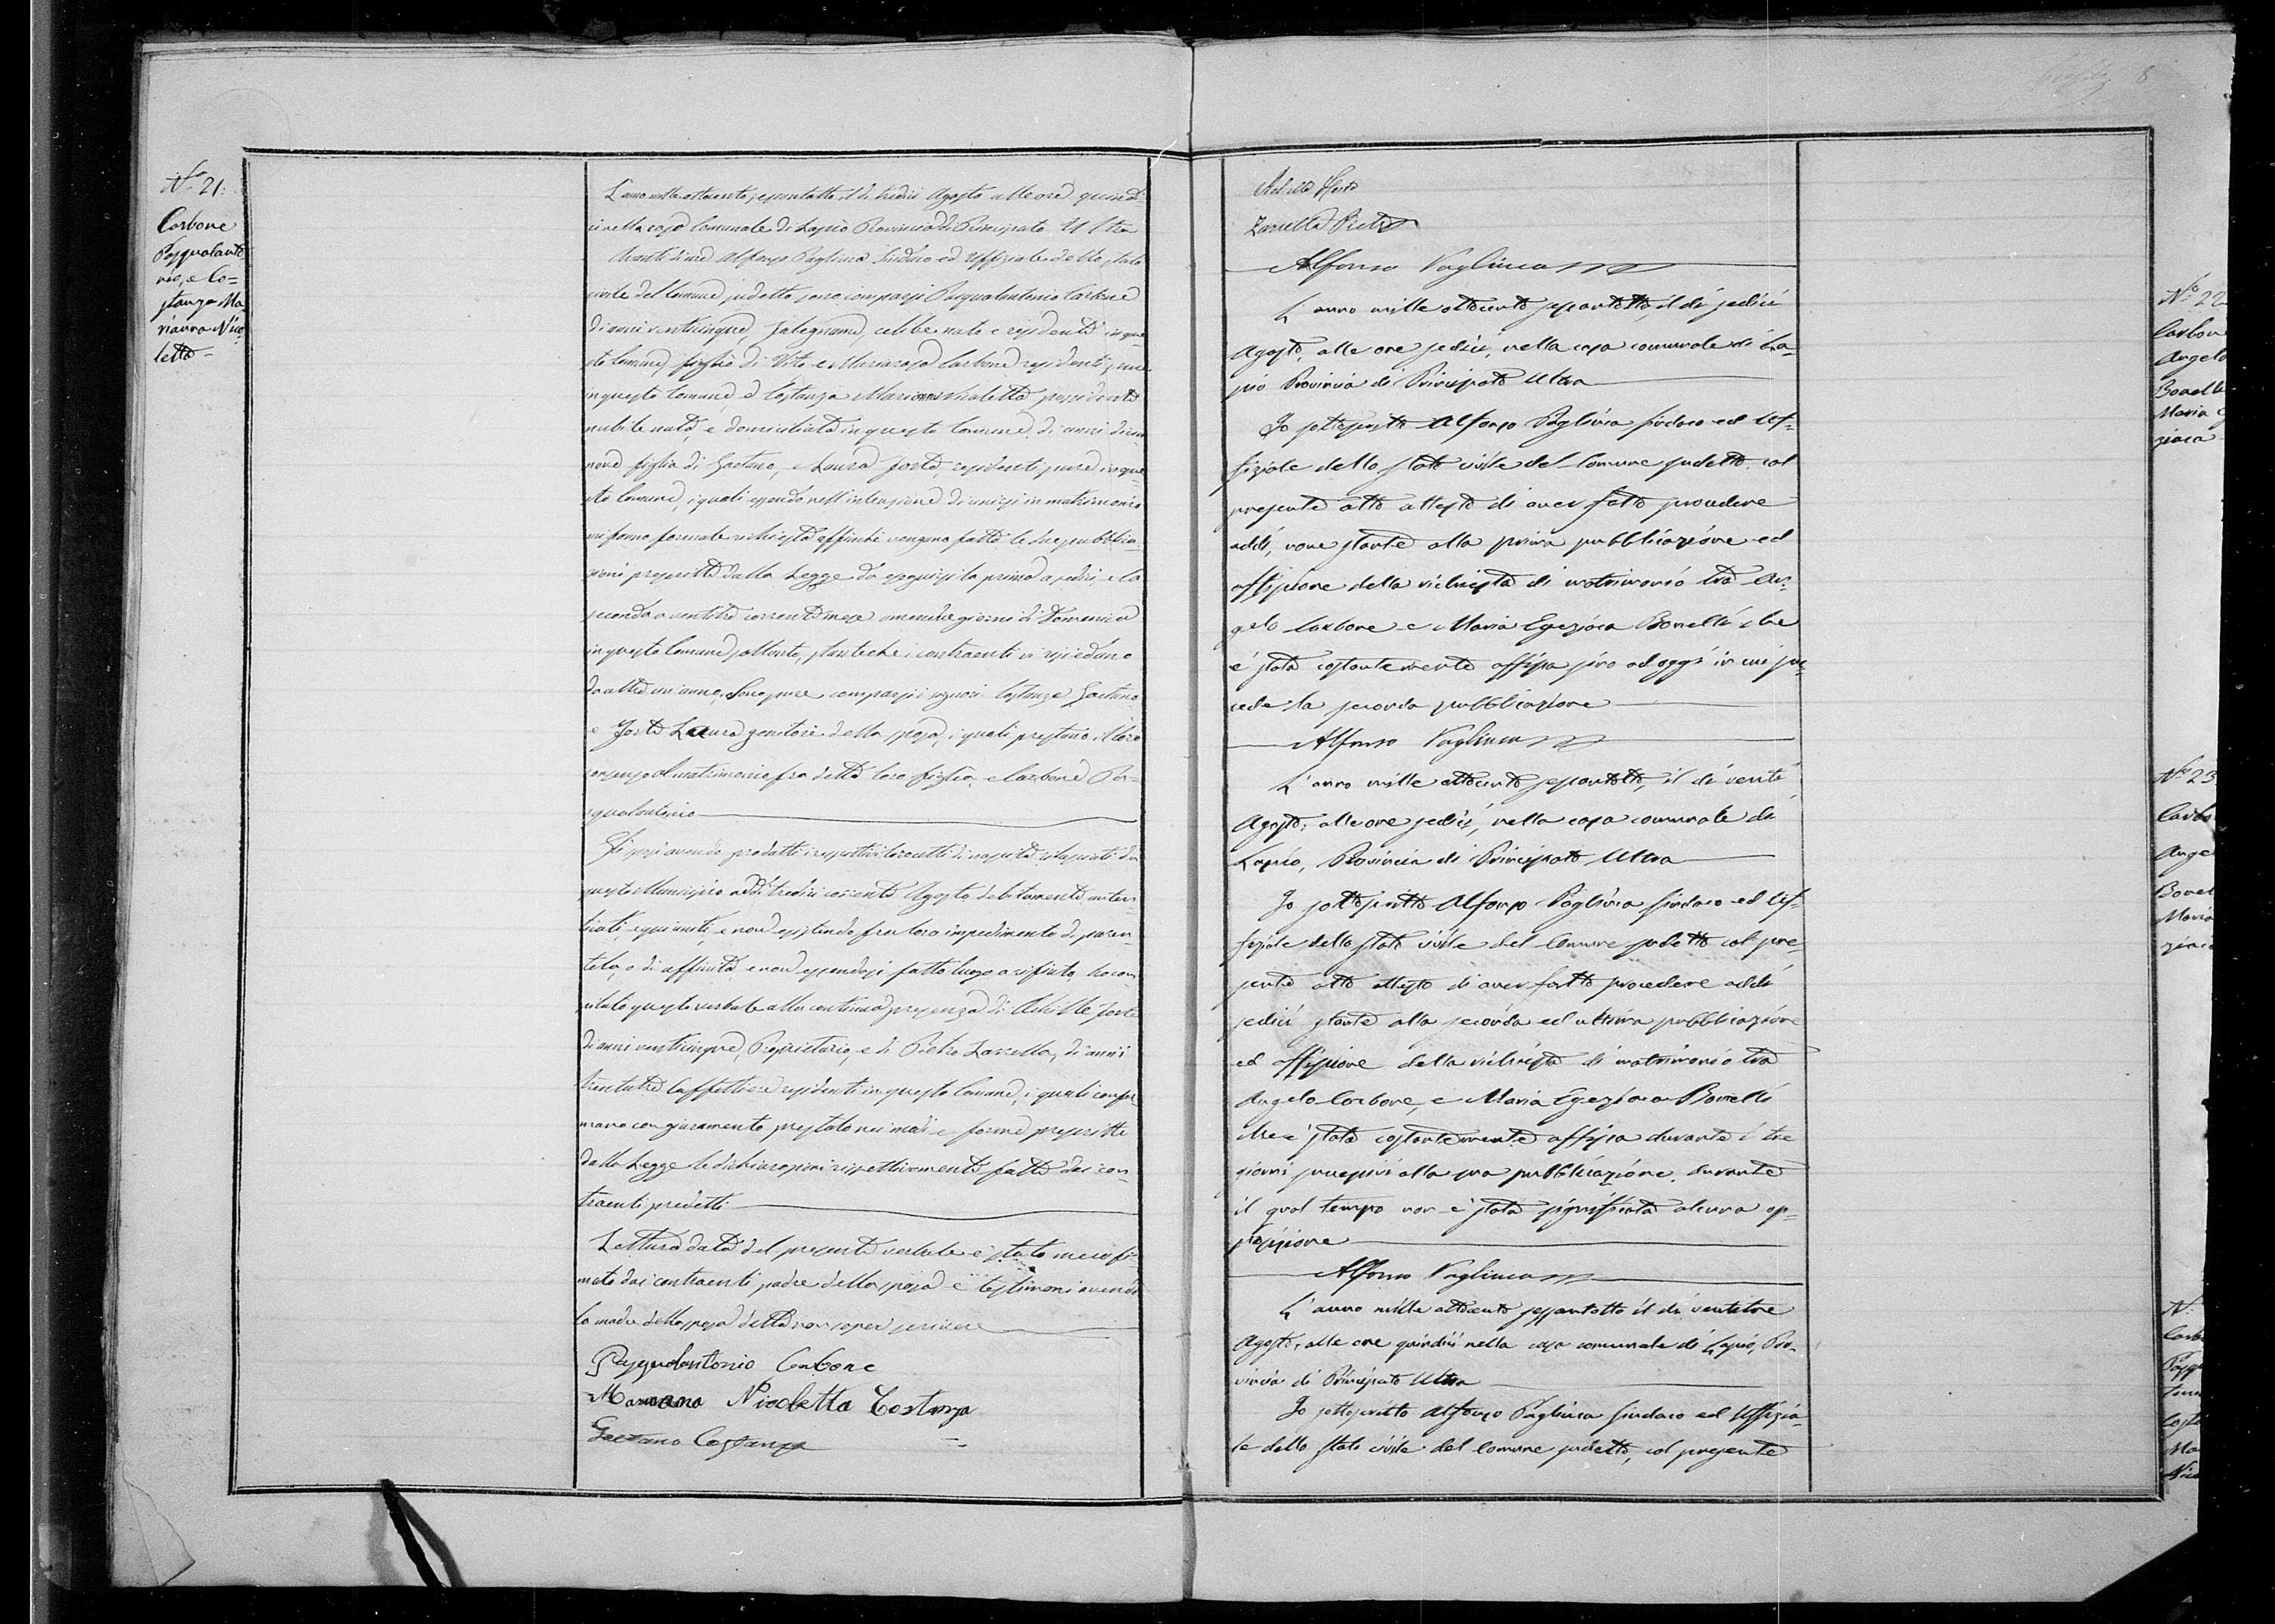 8
N.° 21.
Carbone
Pasqualanto
nio, e Co=
stanza Ma
rianna Nico
letta =
L'anno mille ottocento sessantotto, il dì tredici Agosto alle ore quindi
ci nella casa Comunale di Lapio Provincia di Principato Ultra
Avanti di me Alfonso Paglinca Sindaco ed Uffiziale dello stato
civile del Comune sudetto sono comparsi Pasqualantonio Carbone
di anni venticinque, falegname, celibe nato e residente in que
sto Comune, figlio di Vito e Mariarosa Carbone residenti pure
in questo Comune, e Costanza Marianna Nicoletta possidente
nubile nata, e domiciliata in questo Comune, di anni dician
nove figlia di Gaetano, e Laura Forte, residenti pure in que
sto Comune, i quali essendo nell'intenzione di unirsi in matrimonio
mi fanno formale richiesta affinchè vengano fatte le due pubblica
zioni prescritte dalla Legge da eseguirsi la prima a sedici, e la
seconda a ventitre corrente mese amendue giorni di Domenica
in questo Comune soltanto, stanteche i contraenti vi risiedono
da oltre un anno. Sono pure comparsi i signori Costanza Gaetano
e Forte Laura genitori della sposa, i quali prestano il loro
consenso al matrimonio fra detta loro figlia, e Carbone Pa=
squalantonio
Gli sposi avendo prodotti i rispettivi loro atti di nascita rilasciati da
questo Municipio addì tredici corrente Agosto debitamente auten
ticati, e quì uniti, e non esistendo fra loro impedimento di paren
tela, o di affinità e non essendosi fatto luogo a rifiuto, ho com
pilato questo verbale alla continua presenza di Achille Forte
di anni venticinque, Proprietario, e di Pietro Zarrella, di anni
trentatre Caffettiere residenti in questo Comune, i quali confer
mano con giuramento prestato nei modi e forme prescritte
dalla Legge le dichiarazioni rispettivamente fatte dai con
traenti predetti
Lettura data del presente verbale è stato meco fir
mato dai contraenti padre della sposa e testimoni avendo
la madre della sposa detto non saper scrivere
Pasqualantonio Carbone
Marianna Nicoletta Costanza
Gaetano Costanza
Achille Forte
Zarrella Pietro
Alfonso Paglinca
L'anno mille ottocento sessantotto, il dì sedici
Agosto, alle ore sedici, nella casa comunale di La=
pio Provincia di Principato Ultra
Io sottoscritto Alfonso Paglinca Sindaco ed Uf=
fiziale dello stato civile del Comune sudetto, col
presente atto attesto di aver fatto procedere
addì, nove stante alla prima pubblicazione ed
affissione della richiesta di matrimonio tra An=
gelo Carbone e Maria Egeziaca Borrelli che
è stata costantemente affissa sino ad oggi in cui suc=
cede la seconda pubblicazione
Alfonso Paglinca
L'anno mille ottocento sessantotto, il dì venti
Agosto, alle ore sedici, nella casa comunale di
Lapio, Provincia di Principato Ultra
Io sottoscritto Alfonso Paglinca Sindaco ed Uf=
fiziale dello stato civile del Comune sudetto col pre=
sente atto attesto di aver fatto procedere addì
sedici stante alla seconda ed ultima pubblicazione
ed affissione della richiesta di matrimonio tra
Angelo Carbone, e Maria Egeziaca Borrelli
che è stata costantemente affissa durante i tre
giorni successivi alla sua pubblicazione, durante
il qual tempo non è stata significata alcuna op=
posizione
Alfonso Paglinca
L'anno mille ottocento sessantotto il dì ventitre
Agosto, alle ore quindici nella casa comunale di Lapio, Pro=
vincia di Principato Ultra
Io sottoscritto Alfonso Paglinca Sindaco ed Uffizia=
le dello stato civile del Comune sudetto, col presente
N.° 22
Carbon
Angelo
Borrelli
Maria
ziaca
N.° 23
Carbo
Ange
Borrel
Maria
ziaca
N.
Carb
Pasq
Costa
Ma
Nico